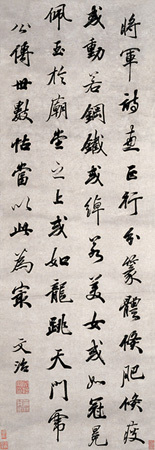 將軍詩兼正行分篆體倏肥倏瘦
或勁若鋼鐵或綽若美女或如冠冕
佩玉於廟堂之上或如龍跳天門虎
公傳世數帖當以此為冣 文治